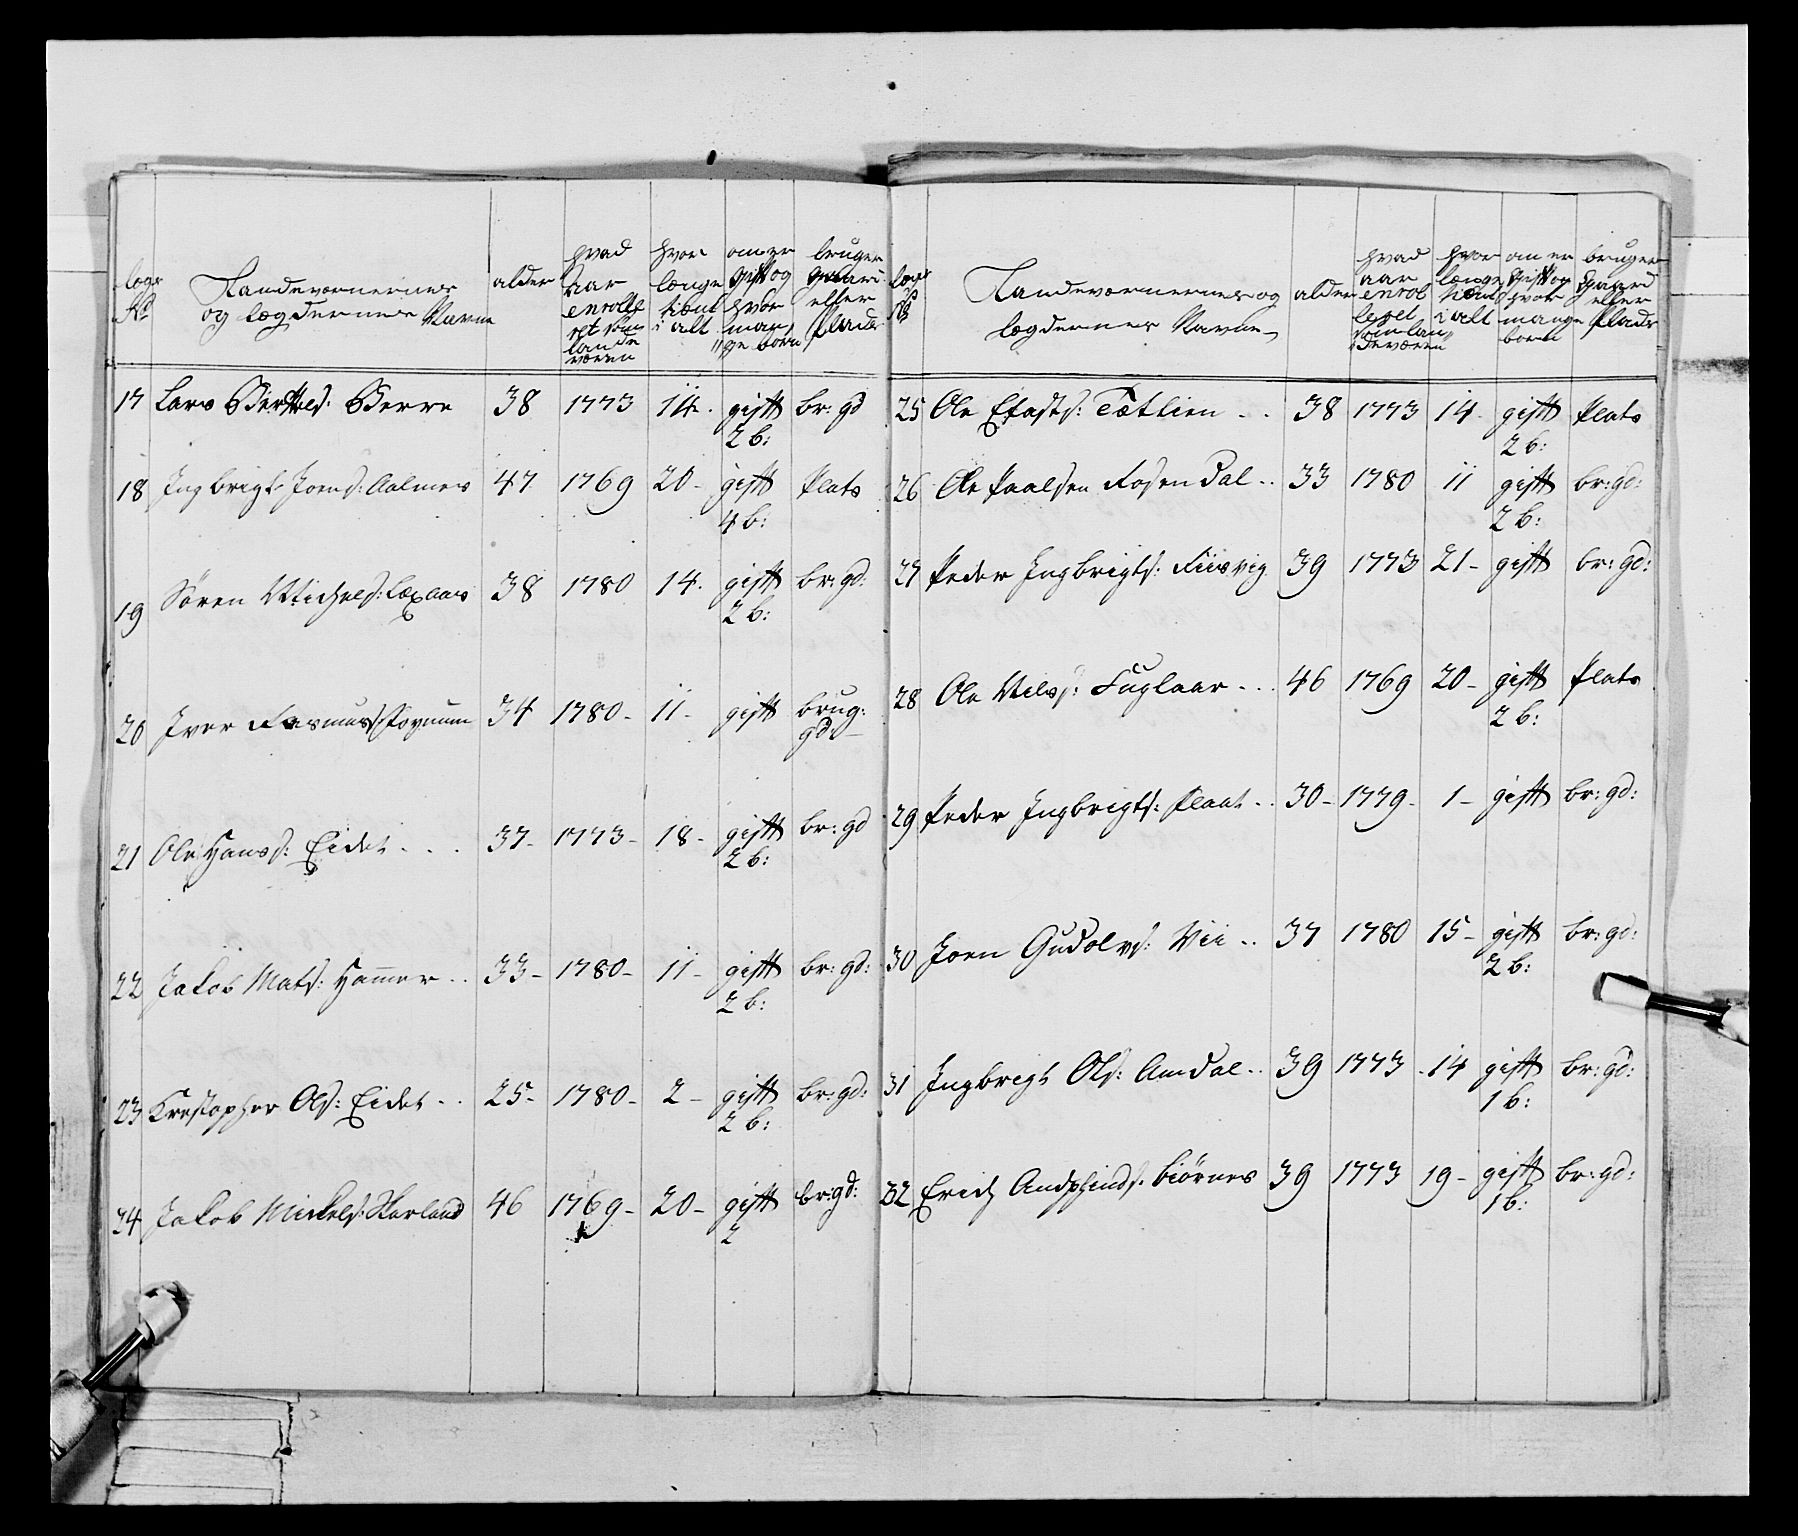 lægs No
Landeværnernes og Lægdernes Navne
alder
hvad Aar enrolleret som landeværen
hvor længe tient i alt
om er gift og hvor mange born
bruger gaard eller Plads
17 Lars Berttels: Berre 38 1773 14. gift 2 b: br: gd
18 Ingbrigt Joens: Aalmes 47 1769 20 - gift 4 b: Plats
19 Søren Michels: Laxaas 38 1780 14. gift 2 b: br: gd:
20 Iver Rasmuss: 34 1780 - 11 - gift brug: gd: -
21 Ole Hanss: Eidet . . . 37 - 1773 - 18 - gift 2 b: br: gd
22 Jakob Mats: Hammer . . 33 - 1780 - 11 - gift 2 b: br: gd:
23 Krestopher Ols: Eidet . . 25 - 1780 - 2 - gift 2 b: br: gd:
24 Jakob Mickels: Harland 46 1769 - 20 - gift 2 br: gd:
lægs No
Landeværnernes og lægdernes Navne
alder
hvad aar enrolleret som landeværen
hvor længe tient i alt
om er Gift og hvor mange born
bruger Gaard eller Plads
25 Ole Efasts: Tøttlien . . 38 1773 14 - gift 2 b: Plats
26 Ole Paalsen Rosendal . . 33 1780 11 gift 2 b: br: gd:
27 Peder Ingbrigts: Fiisvig 39 1773 21 - gift br: gd:
28 Ole Nilss: Fuglaar . . . 46 1769 20 - gift 2 b: Plats
29 Peder Ingbrigts: Plaat . . 30 - 1779 - 1 - gift br: gd:
30 Joen Gudolvs: Vii . . 37 1780 15 - gift 2 b: br: gd:
31 Ingbrigt Ols: Amdal . . 39 1773 . 14 gift 1 b: br: gd:
32 Erich Andphinds: Biørnes 39 1773 19 - gift 1 b: br: gd: